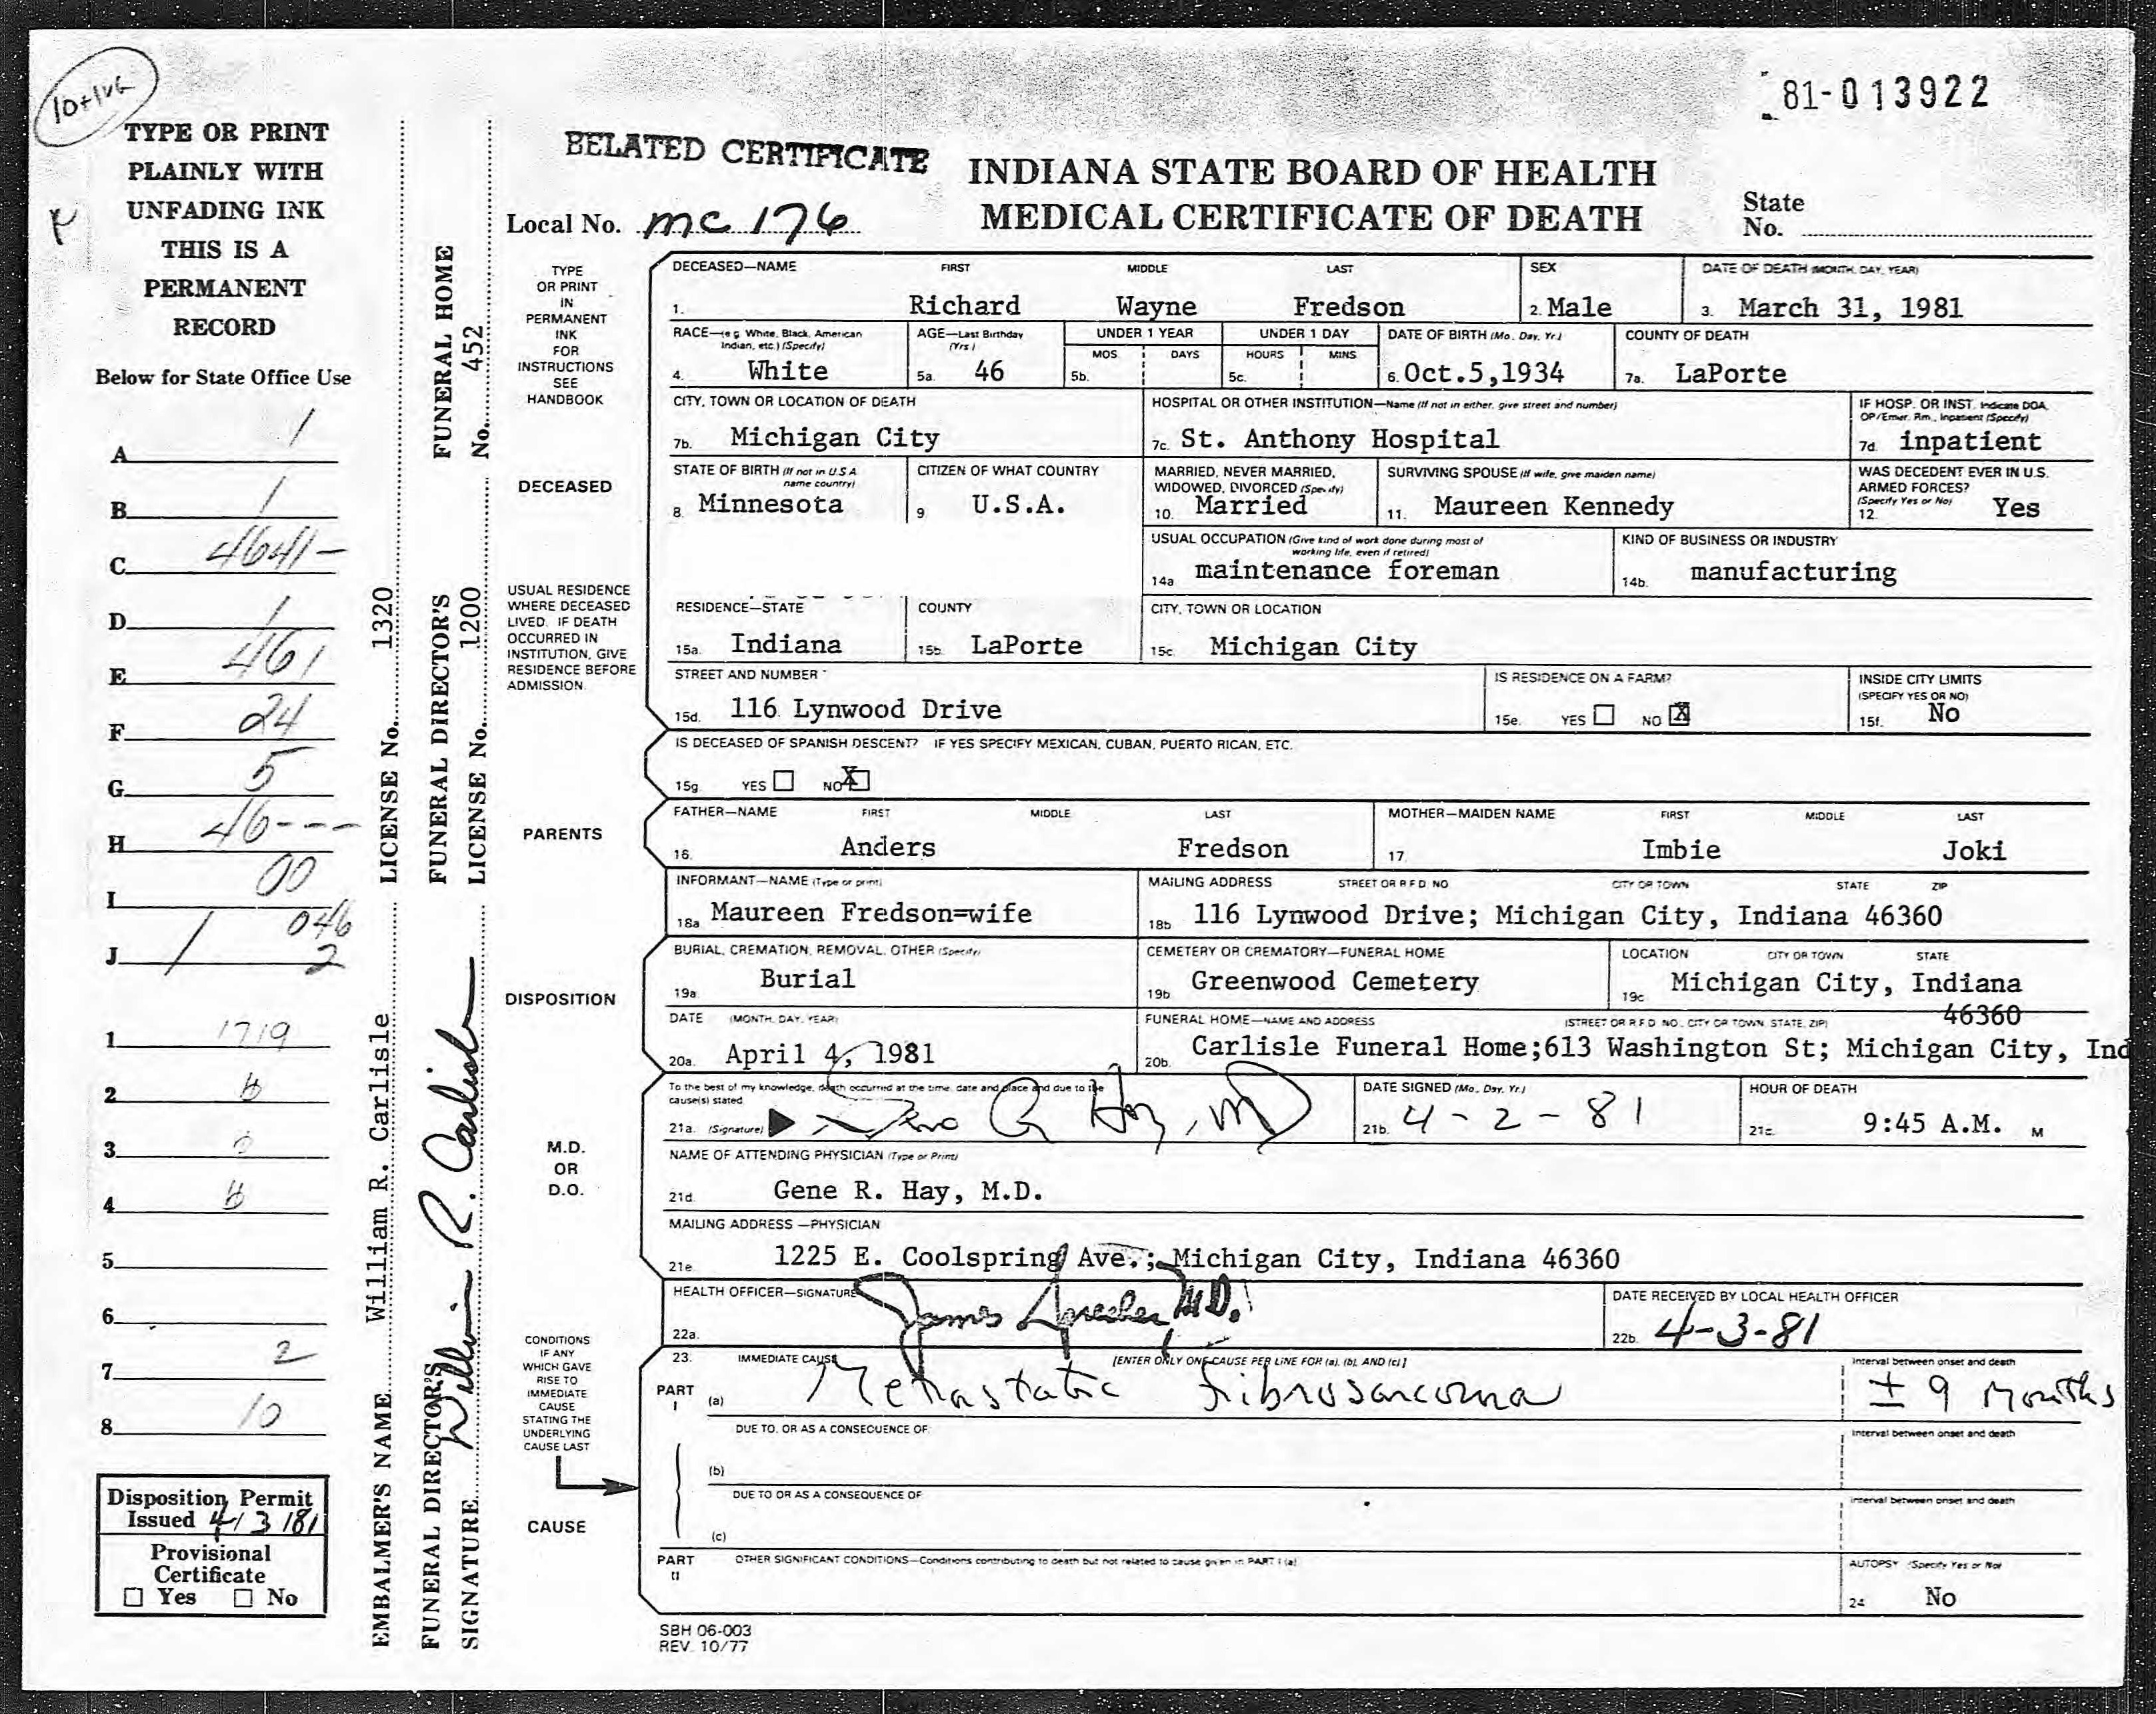 10+1VG
81-013922
TYPE OR PRINT
PLAINLY WITH
UNFADING INK
THIS IS A
PERMANENT
RECORD
Below for State Office Use
A 1
B 1
C 4641-
D 1
E 461
F 24
G 5
H 46---
I 00
046
J 1 2
1 1719
2
3
4
5
6
7 2
8 10
Disposition Permit
Issued 4/3/81
Provisional
Certificate
☐ Yes ☐ No
EMBALMER'S NAME William R. Carlisle LICENSE No. 1320
FUNERAL DIRECTOR'S
SIGNATURE William R. Carlisle
FUNERAL DIRECTOR'S
LICENSE No. 1200
FUNERAL HOME
No. 452
BELATED CERTIFICATE
INDIANA STATE BOARD OF HEALTH
MEDICAL CERTIFICATE OF DEATH
Local No. MC 176
State
No.
TYPE
OR PRINT
IN
PERMANENT
INK
FOR
INSTRUCTIONS
SEE
HANDBOOK
DECEASED—NAME FIRST MIDDLE LAST SEX DATE OF DEATH (MONTH, DAY, YEAR)
1. Richard Wayne Fredson 2. Male 3. March 31, 1981
RACE—(e.g. White, Black, American Indian, etc.) (Specify) AGE—Last Birthday (Yrs.) UNDER 1 YEAR UNDER 1 DAY DATE OF BIRTH (Mo. Day, Yr.) COUNTY OF DEATH
MOS DAYS HOURS MINS
4. White 5a. 46 5b. 5c. 6. Oct.5,1934 7a. LaPorte
CITY, TOWN OR LOCATION OF DEATH HOSPITAL OR OTHER INSTITUTION—Name (If not in either, give street and number) IF HOSP. OR INST. Indicate DOA, OP/Emer. Rm., Inpatient (Specify)
7b. Michigan City 7c. St. Anthony Hospital 7d. inpatient
DECEASED
STATE OF BIRTH (If not in U.S.A. name country) CITIZEN OF WHAT COUNTRY MARRIED, NEVER MARRIED, WIDOWED, DIVORCED (Specify) SURVIVING SPOUSE (If wife, give maiden name) WAS DECEDENT EVER IN U.S. ARMED FORCES? (Specify Yes or No)
8. Minnesota 9 U.S.A. 10. Married 11. Maureen Kennedy 12. Yes
USUAL OCCUPATION (Give kind of work done during most of working life, even if retired) KIND OF BUSINESS OR INDUSTRY
14a maintenance foreman 14b. manufacturing
USUAL RESIDENCE
WHERE DECEASED
LIVED. IF DEATH
OCCURRED IN
INSTITUTION, GIVE
RESIDENCE BEFORE
ADMISSION.
RESIDENCE—STATE COUNTY CITY, TOWN OR LOCATION
15a. Indiana 15b. LaPorte 15c. Michigan City
STREET AND NUMBER IS RESIDENCE ON A FARM? INSIDE CITY LIMITS (SPECIFY YES OR NO)
15d. 116 Lynwood Drive 15e. YES ☐ NO ☒ 15f. No
IS DECEASED OF SPANISH DESCENT? IF YES SPECIFY MEXICAN, CUBAN, PUERTO RICAN, ETC.
15g. YES ☐ NO ☒
PARENTS
FATHER—NAME FIRST MIDDLE LAST MOTHER—MAIDEN NAME FIRST MIDDLE LAST
16. Anders Fredson 17 Imbie Joki
INFORMANT—NAME (Type or print) MAILING ADDRESS STREET OR R F D NO CITY OR TOWN STATE ZIP
18a Maureen Fredson=wife 18b 116 Lynwood Drive; Michigan City, Indiana 46360
DISPOSITION
BURIAL, CREMATION, REMOVAL, OTHER (Specify) CEMETERY OR CREMATORY—FUNERAL HOME LOCATION CITY OR TOWN STATE
19a Burial 19b Greenwood Cemetery 19c Michigan City, Indiana
46360
DATE (MONTH, DAY, YEAR) FUNERAL HOME—NAME AND ADDRESS (STREET OR R.F.D NO., CITY OR TOWN, STATE, ZIP)
20a. April 4, 1981 20b. Carlisle Funeral Home;613 Washington St; Michigan City, Ind
M.D.
OR
D.O.
To the best of my knowledge, death occurred at the time, date and place and due to the cause(s) stated DATE SIGNED (Mo., Day, Yr.) HOUR OF DEATH
21a. (Signature) Gene R Hay, MD 21b. 4-2-81 21c 9:45 A.M. M
NAME OF ATTENDING PHYSICIAN (Type or Print)
21d Gene R. Hay, M.D.
MAILING ADDRESS—PHYSICIAN
21e 1225 E. Coolspring Ave.; Michigan City, Indiana 46360
HEALTH OFFICER—SIGNATURE DATE RECEIVED BY LOCAL HEALTH OFFICER
22a. James M.D. 22b. 4-3-81
CONDITIONS
IF ANY
WHICH GAVE
RISE TO
IMMEDIATE
CAUSE
STATING THE
UNDERLYING
CAUSE LAST
CAUSE
23. IMMEDIATE CAUSE [ENTER ONLY ONE CAUSE PER LINE FOR (a), (b), AND (c)] Interval between onset and death
PART I (a) Metastatic fibrosarcoma ± 9 Months
DUE TO, OR AS A CONSEQUENCE OF: Interval between onset and death
(b)
DUE TO OR AS A CONSEQUENCE OF Interval between onset and death
(c)
PART II OTHER SIGNIFICANT CONDITIONS—Conditions contributing to death but not related to cause given in PART I (a) AUTOPSY (Specify Yes or No)
24 No
SBH 06-003
REV. 10/77